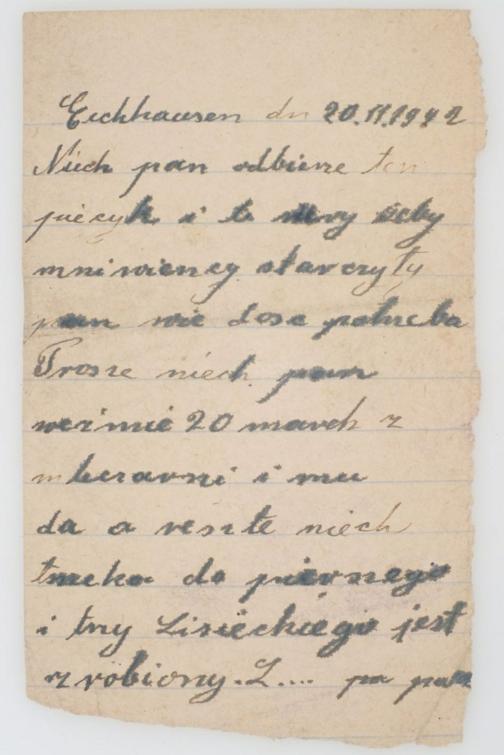 Eichhausen dn 20.11.1942
Niech pan odbierze ten
piecyk i te rury żeby
mniwiencyj starczyły
pan wie dosc potrzeba
Prosze niech pan
weźmie 20 march z
i mu
da a reszte niech
czeka do pierwszego
i try Lisieckiego jest
zrobiony. L....